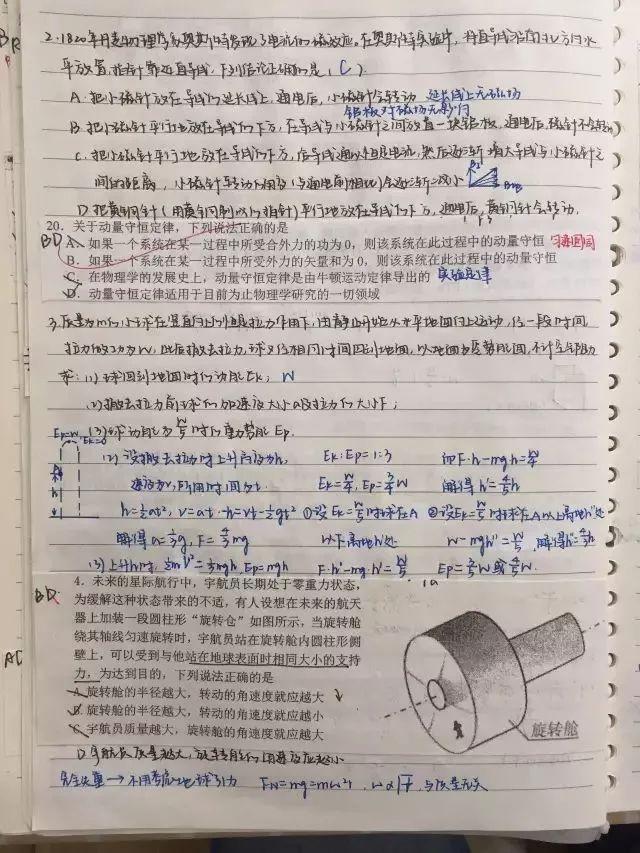 2. 1820年丹麦物理学家奥斯特发现了电流的磁效应。在奥斯特实验中，将直导线沿南北方向水
平放置，指针靠近直导线，下列结论正确的是（C）.
A. 把小磁针放在导线的延长线上，通电后，小磁针会转动 延长线上无磁场
铝板对磁场无影响
B. 把小磁针平行地放在导线的下方，在导线与小磁针之间放置一块铝板，通电后，磁针不会转动
C. 把小磁针平行地放在导线的下方，给导线通以恒定电流，然后逐渐增大导线与小磁针之
间的距离，小磁针转动的角度（与通电前相比）会逐渐减小
D. 把黄铜针（用黄铜制成的指针）平行地放在导线的下方，通电后，黄铜针会转动.
20. 关于动量守恒定律，下列说法正确的是
BD A. 如果一个系统在某一过程中所受合外力的功为0，则该系统在此过程中的动量守恒
B. 如果一个系统在某一过程中所受外力的矢量和为0，则该系统在此过程中的动量守恒
C. 在物理学的发展史上，动量守恒定律是由牛顿运动定律导出的 实验定律
D. 动量守恒定律适用于目前为止物理学研究的一切领域
3. 质量为m的小球在竖直向上的恒定拉力作用下，由静止开始从水平地面向上运动，经一段时间
拉力做功为W，此后撤去拉力，球又经相同时间回到地面，以地面为零势能面，不计空气阻力
求：(1) 球回到地面时的动能Ek； W
(2) 撤去拉力前球的加速度大小a及拉力的大小F；
(3) 球动能为W/5时的重力势能Ep.
Ep=W Ek=0
(2) 设撤去拉力时上升高度为h, Ek:Ep=1:3 即F·h-mgh=W/4
速度为v, 所用时间为t. Ek=W/4, Ep=3/4W 解得h'=4/5h
h=1/2at², v=at -h=vt-1/2gt² ①设Ek=W/5时球在A ②设Ek=W/5时球在A以上离地h'处
解得a=1/3g, F=4/3mg 以下离地h'处 W-mgh'=W/5 解得h'=
(3) 上升h时 1/2mv²=1/3mgh, Ep=mgh F·h'-mg·h'=W/5 Ep=3/5W或4/5W
BD. 4. 未来的星际航行中，宇航员长期处于零重力状态，
为缓解这种状态带来的不适，有人设想在未来的航天
器上加装一段圆柱形“旋转仓”如图所示，当旋转舱
绕其轴线匀速旋转时，宇航员站在旋转舱内圆柱形侧
壁上，可以受到与他站在地球表面时相同大小的支持
力，为达到目的，下列说法正确的是
A. 旋转舱的半径越大，转动的角速度就应越大
B. 旋转舱的半径越大，转动的角速度就应越小
C. 宇航员质量越大，旋转舱的角速度就应越大
旋转舱
D. 宇航员质量越大，旋转舱的角速度应越小
完全失重→不用考虑地球引力 FN=mg=mω²r, 与质量无关